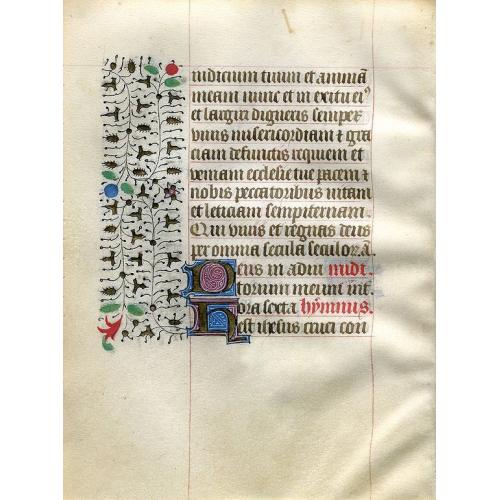 iudicium tuum et animã
meam nunc et in exitu ei⁹
et largiri digneris semper
viuis misericordiam ⁊ gra
ciam defunctis requiem et
veniam ecclesie tue pacem ⁊
nobis peccatoribus uitam
et leticiam sempiternam.
Qui viuis et regnas deus
per omnia secula seculorã.
Deus in adiu midi.
torium meum int.
Hora sexta hỹmnus.
est ihesus cruci con